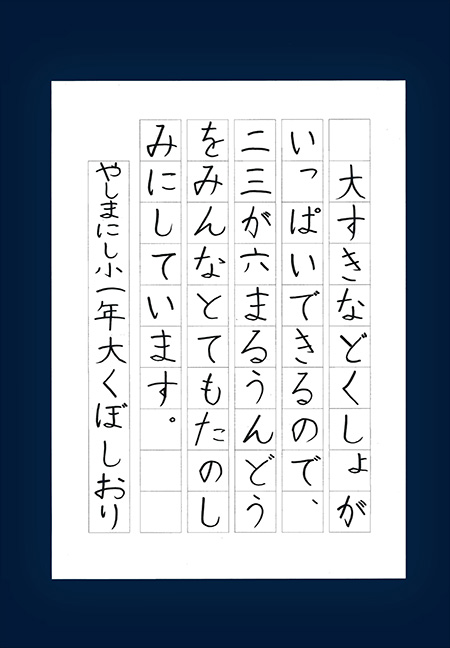 大すきなどくしょが
いっぱいできるので、
二三が六まるうんどう
をみんなとてもたのし
みにしています。
やしまにし小一年大くぼしおり